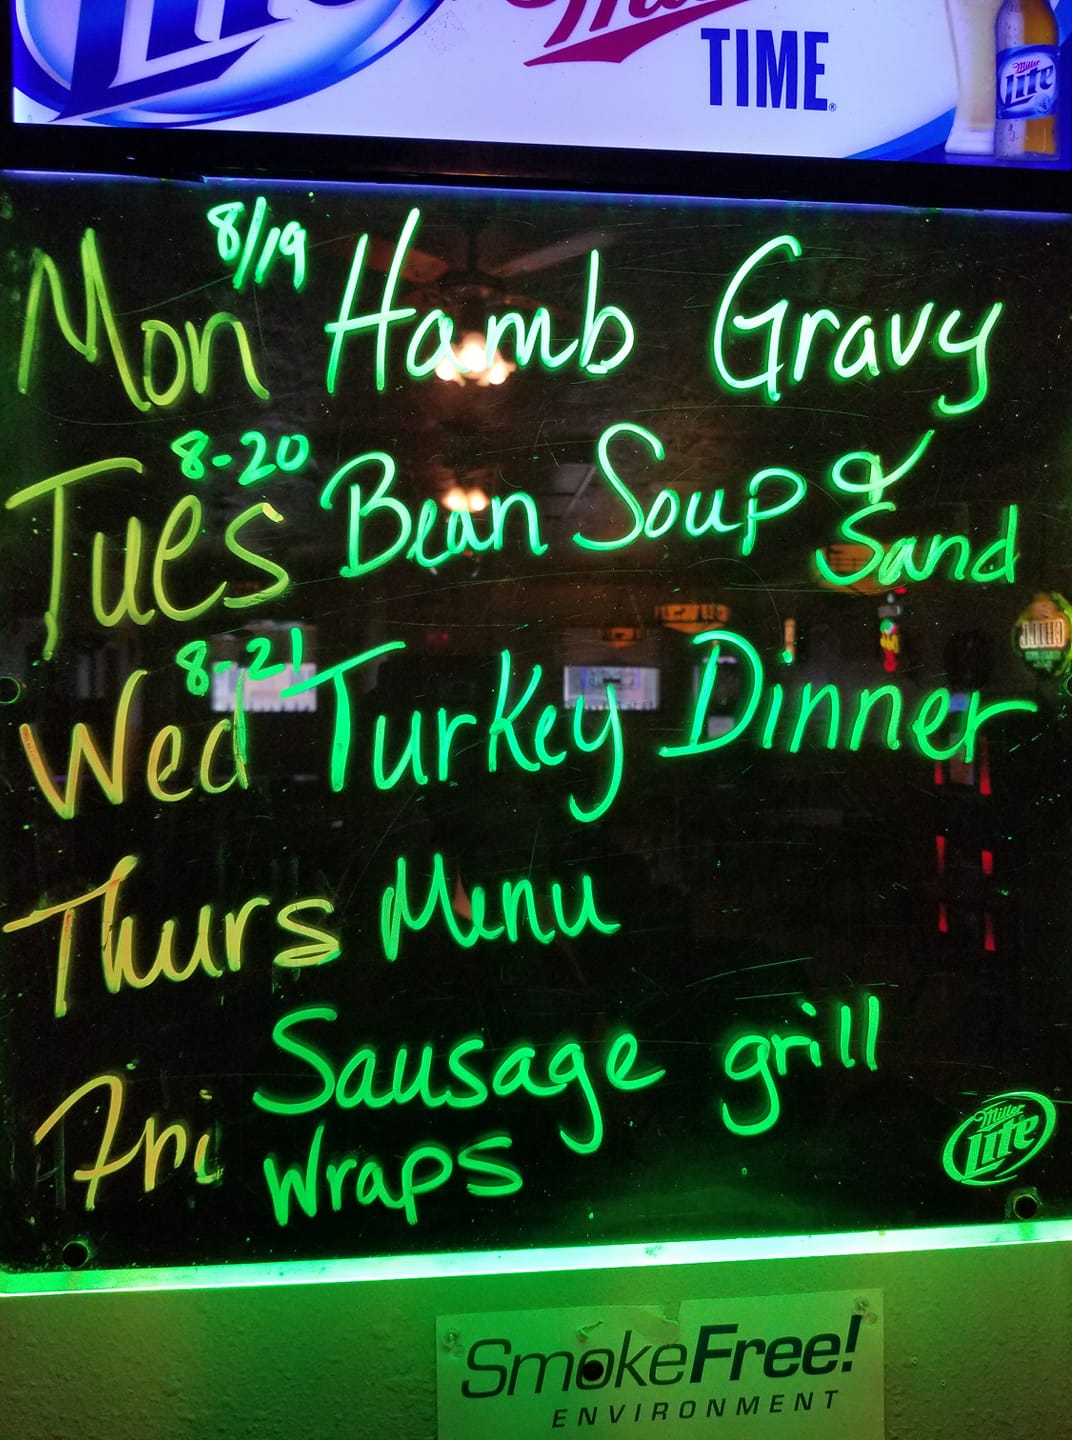 Lite
Miller
TIME
Miller
Lite
8/19
Mon Hamb Gravy
8-20
Tues Bean Soup &
Sand
8-21
Wed Turkey Dinner
Thurs Menu
Sausage grill
Fri Wraps
Miller
Lite
SmokeFree!
ENVIRONMENT